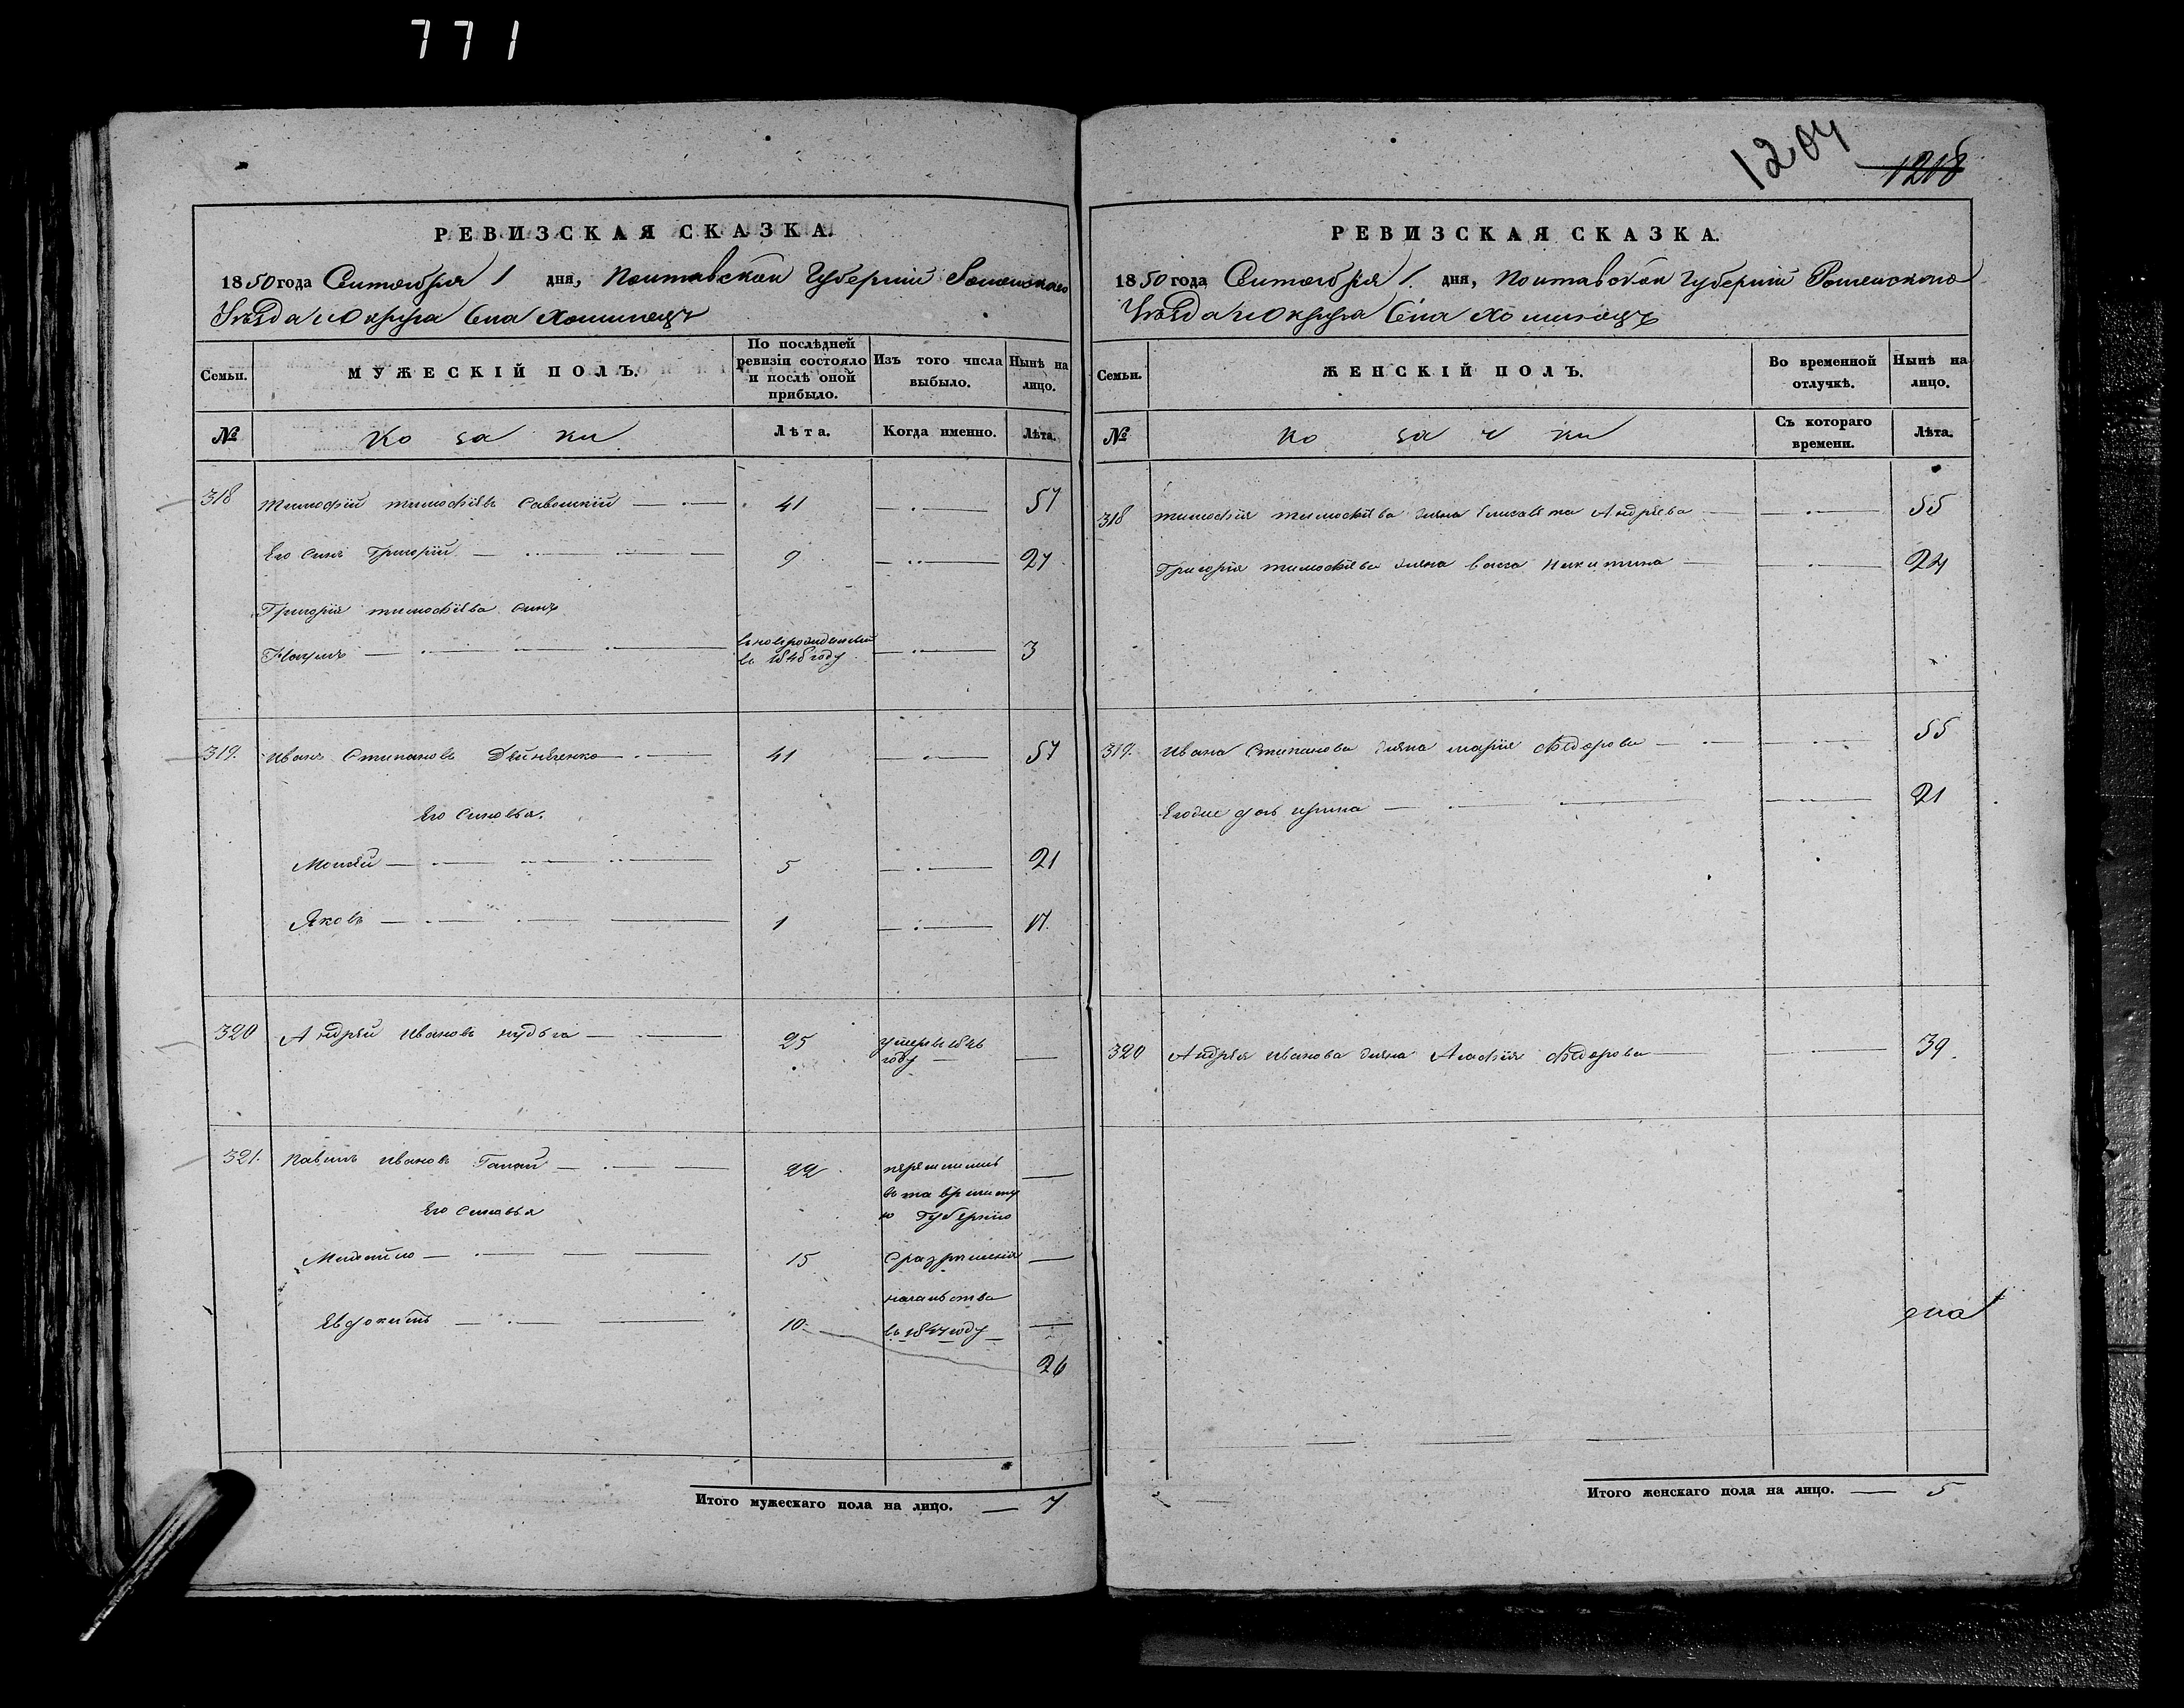 771
1204
1218
РЕВИЗСКАЯ СКАЗКА.
1850 года Сентября 1 дня, Полтавской Губернии Роменского
Уѣзда и Округа Села Хоминецъ
Семьи.
МУЖЕСКІЙ ПОЛЪ.
По послѣдней ревизіи состояло и послѣ оной прибыло.
Изъ того числа выбыло.
Нынѣ на лицо.
№
Козаки
Лѣта.
Когда именно.
Лѣта.
318 Тимофій Тимофіевъ 41 57
Его синъ Григорій 9 27
Григорія Тимофіева синъ
Наумъ новорожденный въ 1848 году 3
319. Иванъ Степановъ 41 57
Его синовья.
Мойсей 5 21
Яковъ 1 17.
320 Андрѣй Ивановъ Кудьга 25 умеръ въ 1846 году
321. Павелъ Ивановъ Гапон 22
Его синовья
Михайло 15
Евдокимъ 10
въ 1847 году
26
Итого мужескаго пола на лицо. 7
РЕВИЗСКАЯ СКАЗКА.
1850 года Сентября 1. дня, Полтавской Губерніи Роменского
Уѣзда и Округа Села Хоминецъ
Семьи.
ЖЕНСКІЙ ПОЛЪ.
Во временной отлучкѣ.
Нынѣ на лицо.
№
Козачки
Съ котораго времени.
Лѣта.
318 Тимофія Тимофіева жена Елисавета Андрѣева 55
Григорія Тимофіева жена Васса Никитина 24
319. Ивана Степанова жена Марія Федорова 55
Егоже дочь Ирина 21
320 Андрѣя Иванова жена Агафія Федорова 39.
Итого женскаго пола на лицо. 5